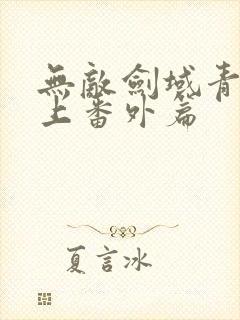 無敵劍域青
上番外篇
夏言冰